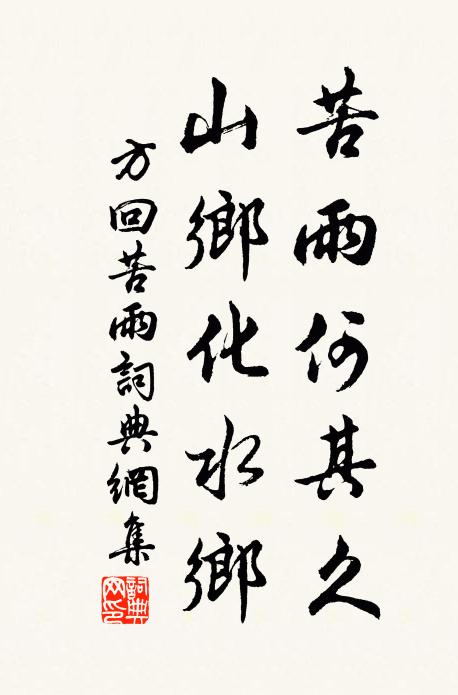 苦雨何其久
山鄉化水鄉
方回苦雨詞典網集
詞典網印